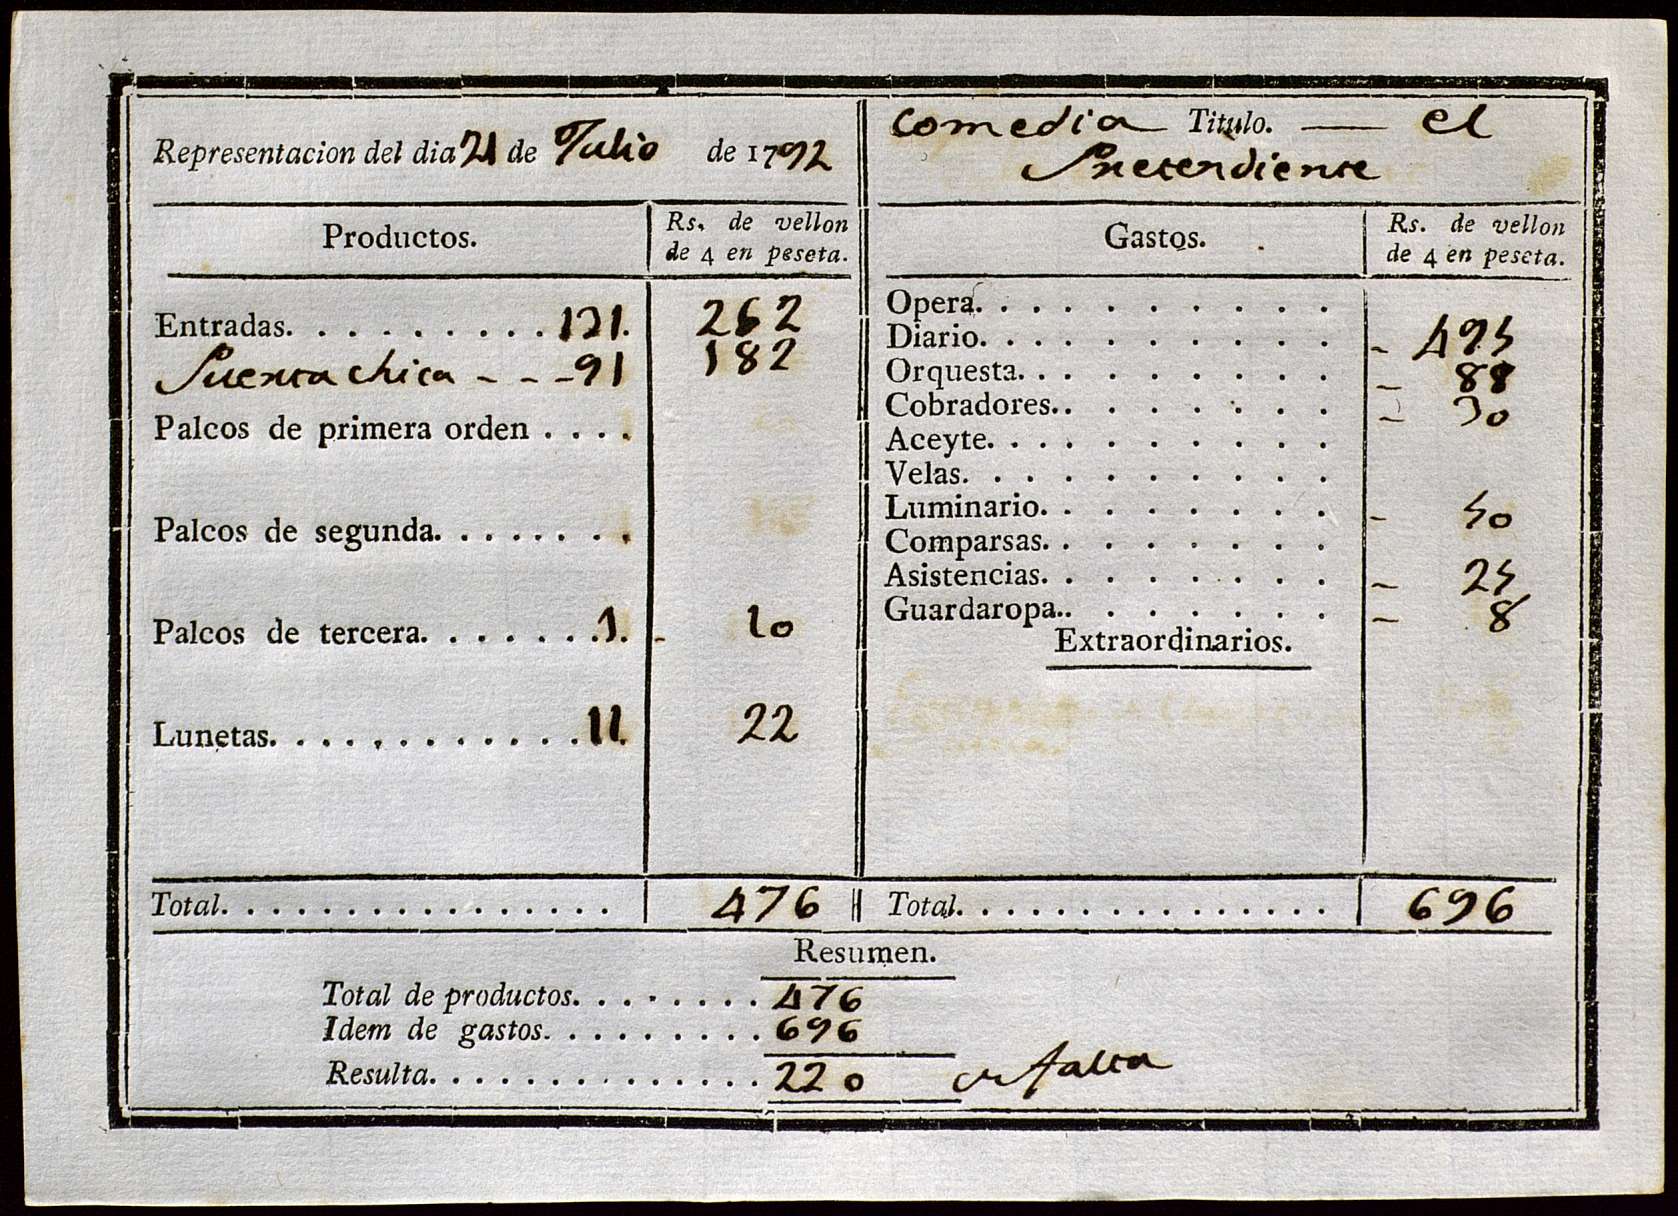 Representacion del dia 21 de Julio de 1792
comedia Titulo. — el
Pretendiente
Productos.
Rs. de vellon
de 4 en peseta.
Entradas. . . . . . . . . . 131. 262
Puerta chica - - - 91 182
Palcos de primera orden . . . .
Palcos de segunda. . . . . . . .
Palcos de tercera. . . . . . . 1. - 10
Lunetas. . . . . . . . . . . . . . 11. 22
Total. . . . . . . . . . . . . . . . . 476
Gastos.
Rs. de vellon
de 4 en peseta.
Opera. . . . . . . . . . .
Diario. . . . . . . . . . . - 495
Orquesta. . . . . . . . . . - 88
Cobradores.. . . . . . . . - 30
Aceyte. . . . . . . . . . .
Velas. . . . . . . . . . .
Luminario. . . . . . . . . - 50
Comparsas. . . . . . . . .
Asistencias. . . . . . . . . - 25
Guardaropa.. . . . . . . . - 8
Extraordinarios.
Total. . . . . . . . . . . . . . . . 696
Resumen.
Total de productos. . . . . . . . 476
Idem de gastos. . . . . . . . . . 696
Resulta. . . . . . . . . . . . . . . 220 falta